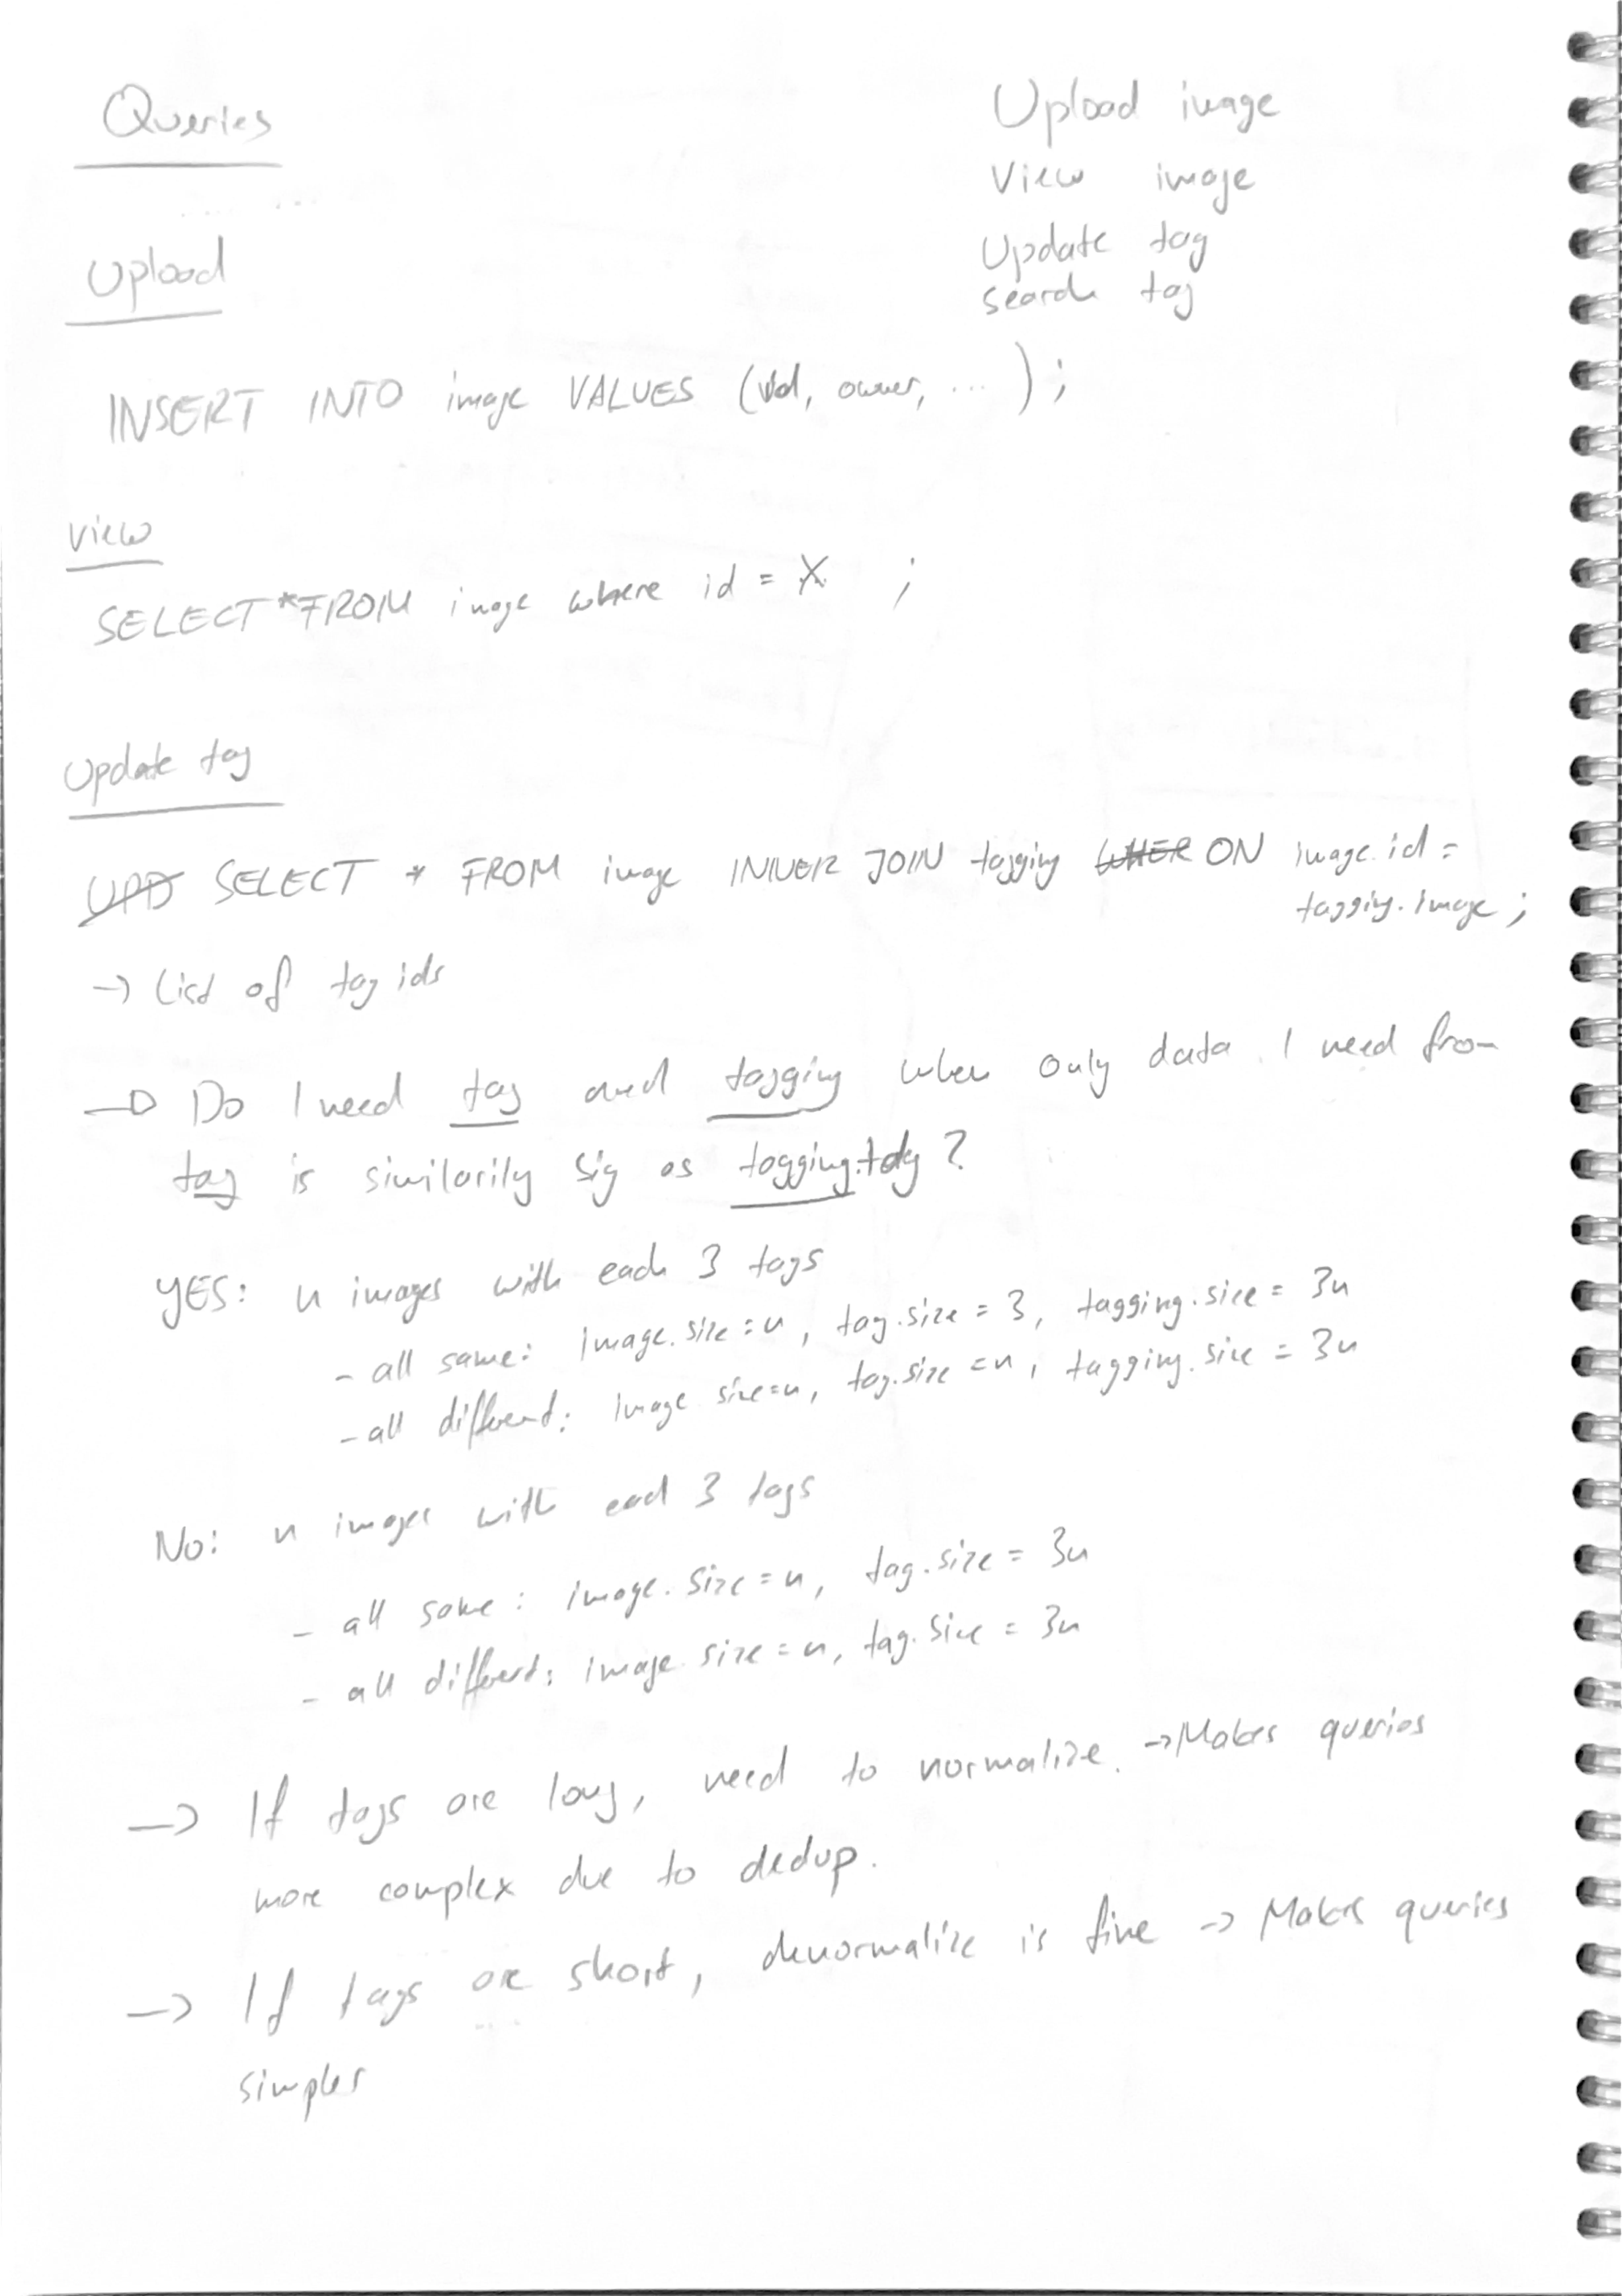 Queries
Upload image
View image
Update tag
search tag
Upload
INSERT INTO image VALUES (id, owner, ... );
view
SELECT * FROM image where id = X ;
Update tag
UPD SELECT * FROM image INNER JOIN tagging WHER ON image.id =
tagging.image;
-> List of tag ids
-> Do I need tag and tagging when only data I need from
tag is similarily big as tagging.tag?
YES: n images with each 3 tags
- all same: image.size = n, tag.size = 3, tagging.size = 3n
- all different: image size=n, tag.size = n, tagging.size = 3n
No: n images with each 3 tags
- all same: image.size = n, tag.size = 3n
- all different: image size = n, tag.size = 3n
-> If tags are long, need to normalize. -> Makes queries
more complex due to dedup.
-> If tags are short, denormalize is fine -> Makes queries
simpler